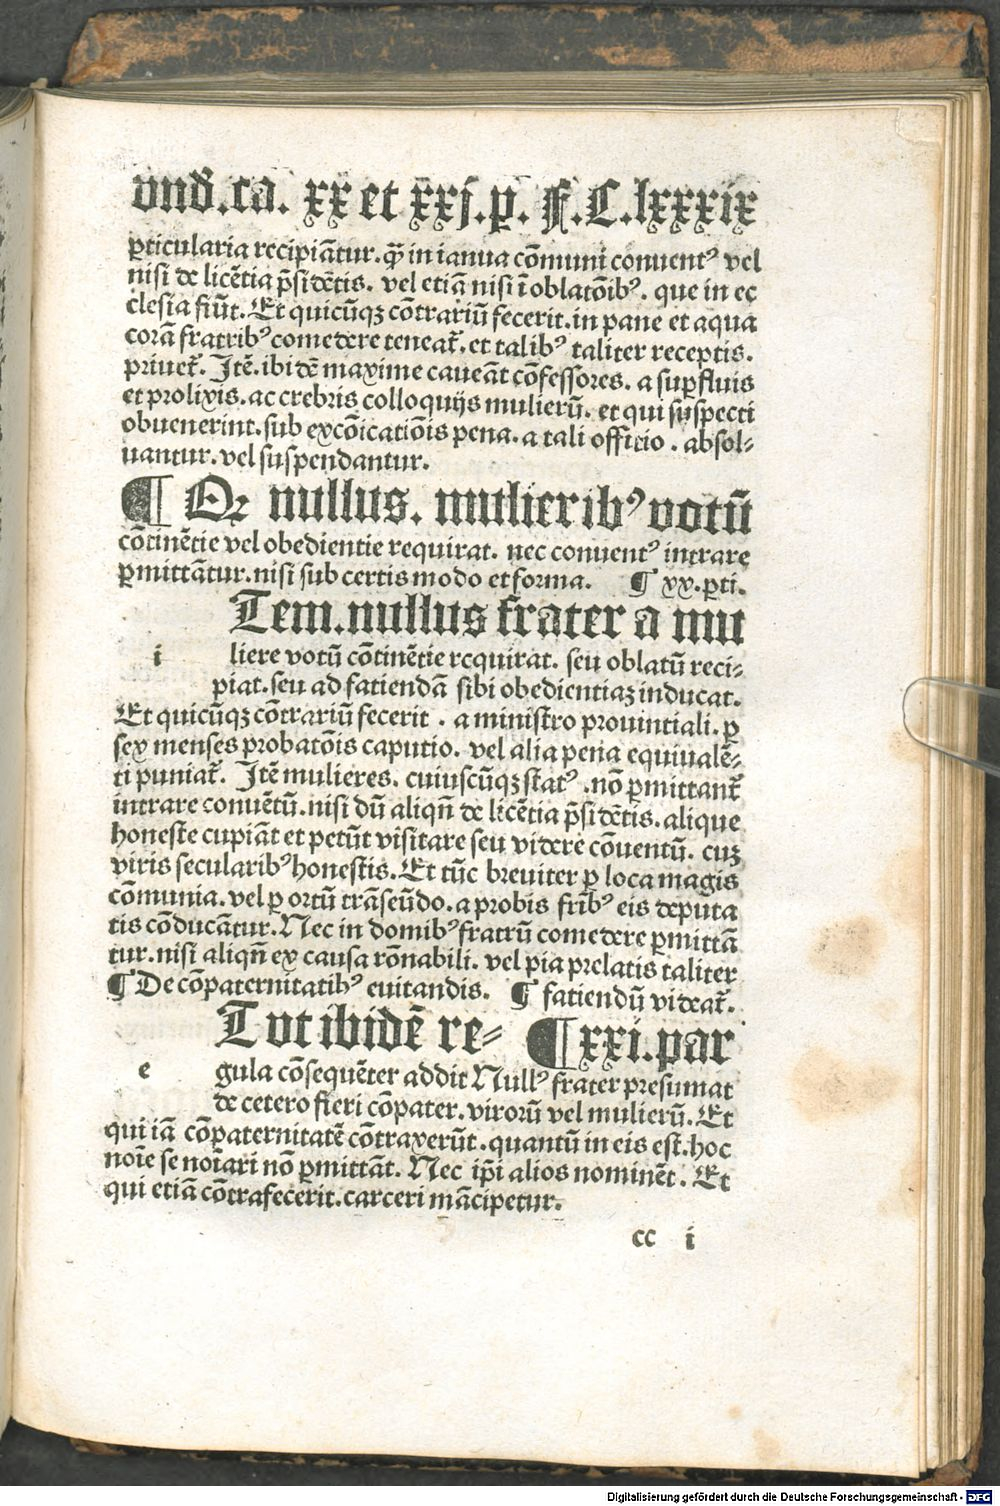 vnd᷑.ca. xx et xxj.p̲. F.C.lxxxix
p̲ticularia recipiãtur.q̃ in ianua cõmuni conuentꝰ vel
nisi de licẽtia p̃sidẽtis. vel etiã nisi ĩ oblatõibꝰ. que in ec
clesia fiũt. Et quicũqꝫ cõtrariũ fecerit.in pane et aqua
corã fratribꝰ comedere teneat᷑. et talibꝰ taliter receptis.
priuet᷑. Jtẽ. ibidẽ maxime caueãt cõfessores. a sup̲fluis
et prolixis. ac crebris colloquijs mulierũ. et qui suspecti
obuenerint.sub excõicatiõis pena. a tali officio. absol⸗
uantur. vel suspendantur.
¶ Qꝛ nullus. mulieribꝰ votũ
cõtinẽtie vel obedientie requirat. nec conuentꝰ intrare
p̲mittãtur.nisi sub certis modo et forma. ¶ xx.p̲ti.
Tem.nullus frater a mu
i liere votũ cõtinẽtie requirat. seu oblatũ reci⸗
piat.seu ad fatiendã sibi obedientiaꝫ inducat.
Et quicũqꝫ cõtrariũ fecerit . a ministro prouintiali. p̲
sex menses probatõis caputio. vel alia pena equiualẽ⸗
ti puniat᷑. Jtẽ mulieres. cuiuscũqꝫ statꝰ .nõ p̲mittant᷑
intrare conuẽtũ.nisi dũ aliqñ de licẽtia p̃sidẽtis. alique
honeste cupiãt et petũt visitare seu videre cõuentũ. cuꝫ
viris secularibꝰ honestis. Et tũc breuiter p̲ loca magis
cõmunia. vel p̲ ortũ trãseũdo. a probis frĩbꝰ eis deputa
tis cõducãtur. Nec in domibꝰ fratrũ comedere p̲mittã
tur. nisi aliqñ ex causa rõnabili. vel pia prelatis taliter
¶ De cõpaternitatibꝰ euitandis. ¶ fatiendũ videat᷑.
T vt ibidẽ re⸗ ¶xxi.par
e gula cõsequẽter addit Nullꝰ frater presumat
de cetero fieri cõpater. virorũ vel mulierũ. Et
qui iã cõpaternitatẽ cõtraxerũt. quantũ in eis est.hoc
noĩe se noĩari nõ p̲mittãt. Nec ip̃i alios nominẽt. Et
qui etiã cõtrafecerit. carceri mãcipetur.
cc i
Digitalisierung gefördert durch die Deutsche Forschungsgemeinschaft - DFG